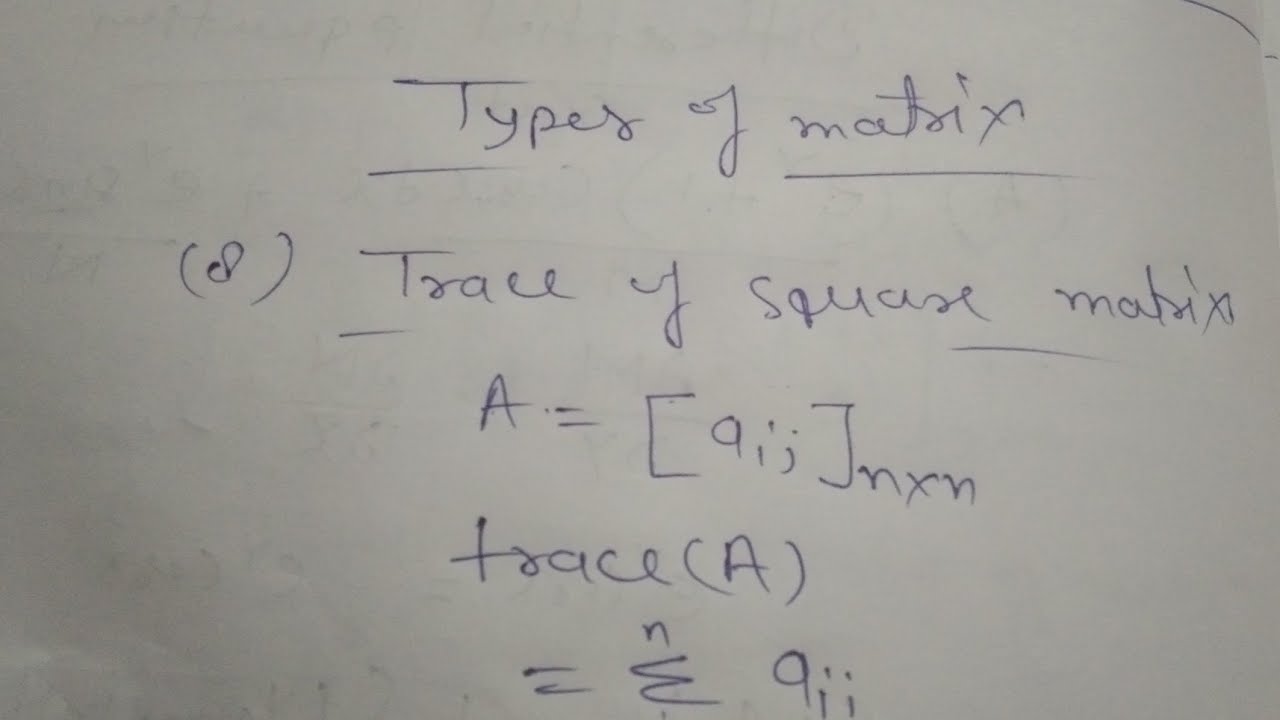 Types of matrix
(8) Trace of square matrix
A = [aij]n×n
trace(A)
= n∑ aii